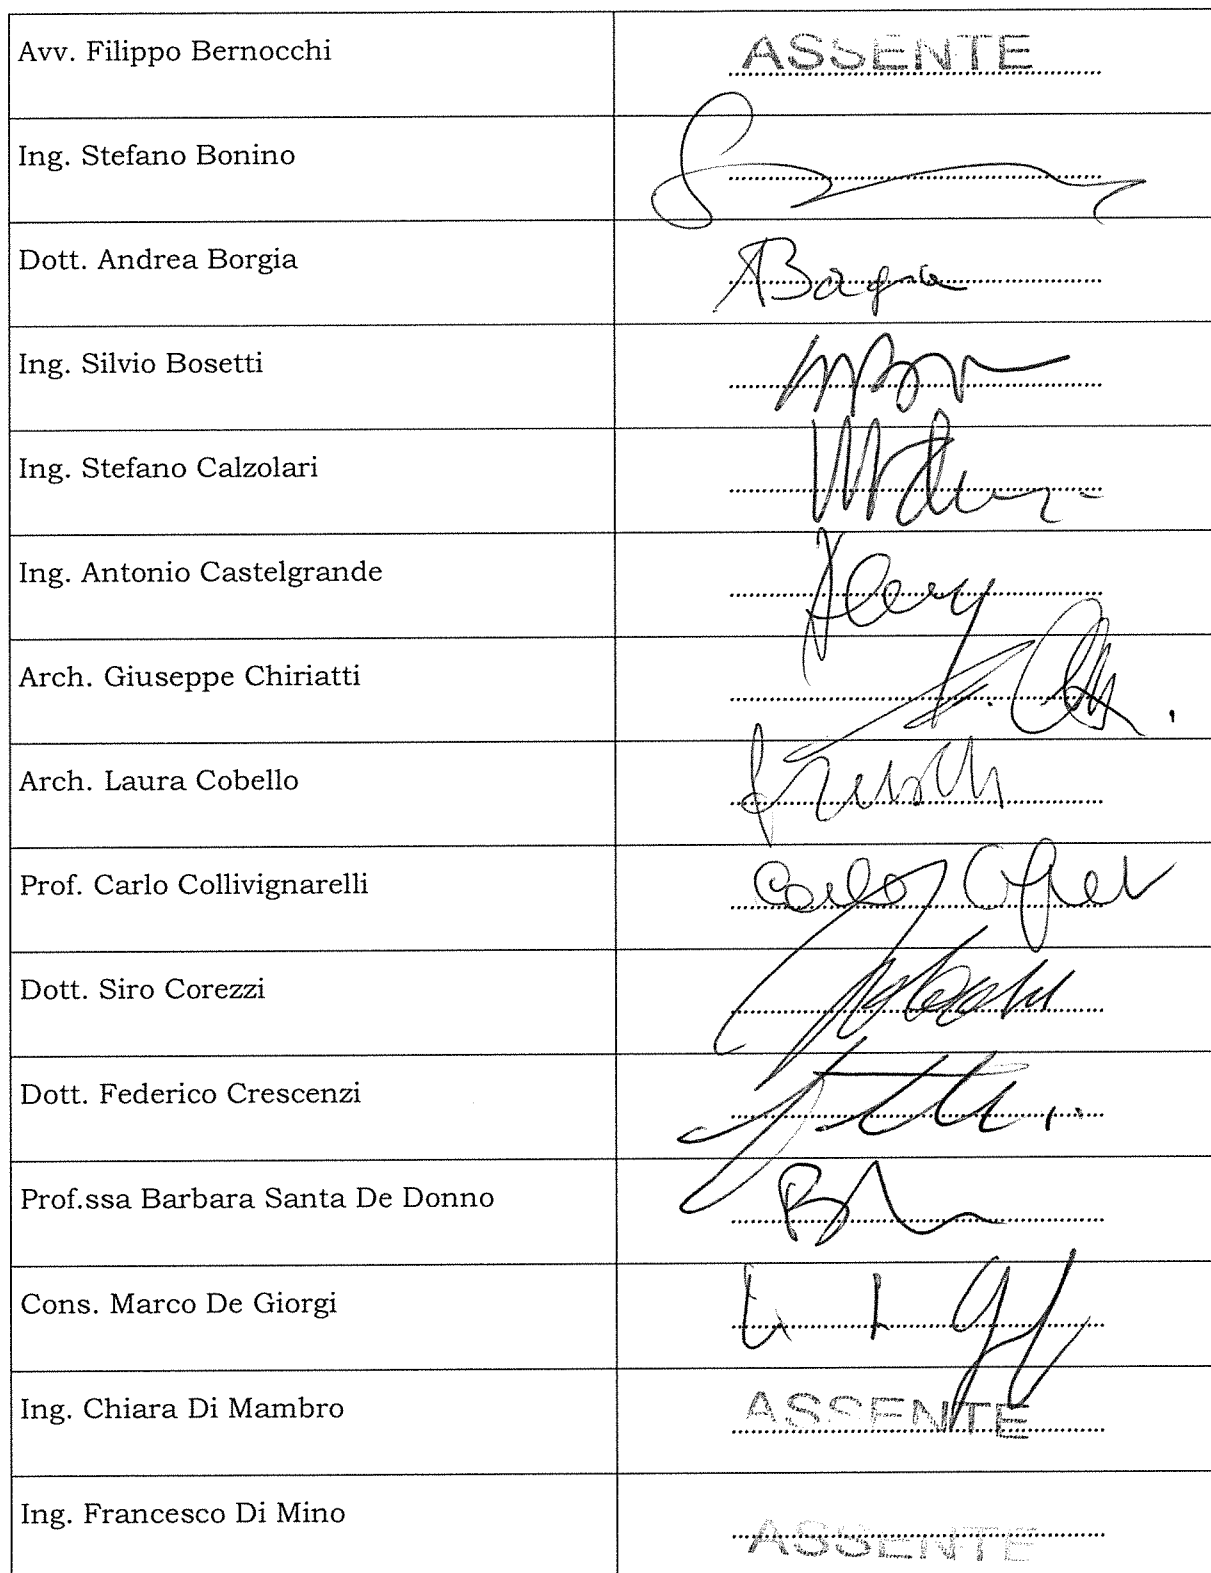 Avv. Filippo Bernocchi
ASSENTE
Ing. Stefano Bonino
Dott. Andrea Borgia
Ing. Silvio Bosetti
Ing. Stefano Calzolari
Ing. Antonio Castelgrande
Arch. Giuseppe Chiriatti
Arch. Laura Cobello
Prof. Carlo Collivignarelli
Carlo
Dott. Siro Corezzi
Dott. Federico Crescenzi
Prof.ssa Barbara Santa De Donno
Cons. Marco De Giorgi
Ing. Chiara Di Mambro
ASSENTE
Ing. Francesco Di Mino
ASSENTE